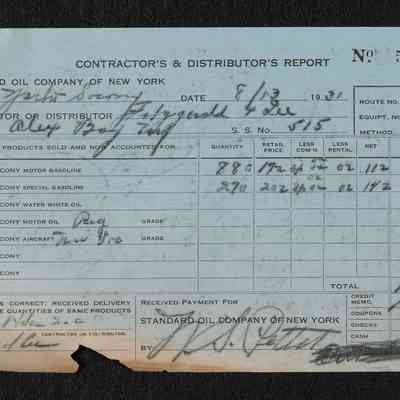 CONTRACTOR'S & DISTRIBUTOR'S REPORT Nº 5
RD OIL COMPANY OF NEW YORK
DATE 8/13 1931
ROUTE NO.
TOR OR DISTRIBUTOR Fitzgerald & Lee
EQUIPT. NO
Alex Bay S. S. NO. 515
METHOD
PRODUCTS SOLD AND NOT ACCOUNTED FOR: QUANTITY RETAIL PRICE LESS COM'N. LESS RENTAL NET
CONY MOTOR GASOLINE 880 172 02 112
CONY SPECIAL GASOLINE 270 202 02 142
CONY WATER WHITE OIL
CONY MOTOR OIL Reg GRADE
CONY AIRCRAFT GRADE
CONY
CONY
TOTAL
IS CORRECT. RECEIVED DELIVERY
E QUANTITIES OF SAME PRODUCTS
CONTRACTOR OR DISTRIBUTOR.
RECEIVED PAYMENT FOR
STANDARD OIL COMPANY OF NEW YORK
CREDIT MEMO.
COUPONS
CHECKS
CASH